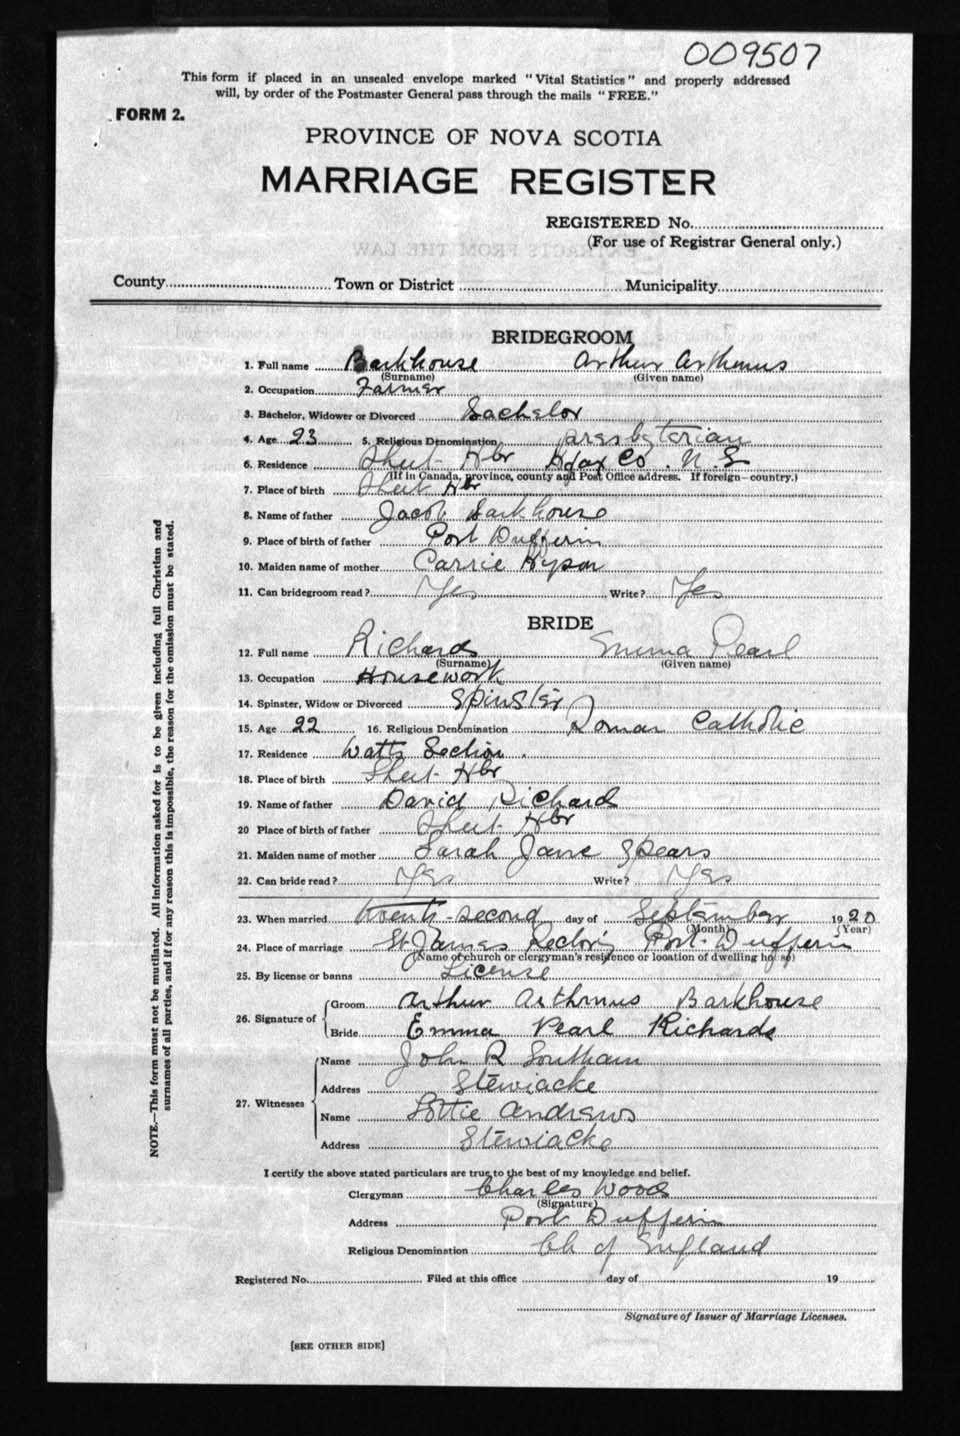 009507
This form if placed in an unsealed envelope marked "Vital Statistics" and properly addressed
will, by order of the Postmaster General pass through the mails "FREE."
FORM 2.
PROVINCE OF NOVA SCOTIA
MARRIAGE REGISTER
REGISTERED No.
(For use of Registrar General only.)
EXTRACTS FROM THE LAW
County Town or District Municipality
BRIDEGROOM
1. Full name Barkhouse Arthur Arthmus
(Surname) (Given name)
2. Occupation Farmer
3. Bachelor, Widower or Divorced Bachelor
4. Age 23 5. Religious Denomination Presbyterian
6. Residence Sheet Hbr Hfax Co. N.S
(If in Canada, province, county and Post Office address. If foreign—country.)
7. Place of birth Sheet Hbr
8. Name of father Jacob Barkhouse
9. Place of birth of father Port Dufferin
10. Maiden name of mother Carrie Hyson
11. Can bridegroom read? Yes Write? Yes
BRIDE
12. Full name Richards Emma Pearl
(Surname) (Given name)
13. Occupation Housework
14. Spinster, Widow or Divorced Spinster
15. Age 22 16. Religious Denomination Roman Catholic
17. Residence Watts Section.
18. Place of birth Sheet Hbr
19. Name of father David Richard
20 Place of birth of father Sheet Hbr
21. Maiden name of mother Sarah Jane Spears
22. Can bride read? Yes Write? Yes
23. When married Twenty-second day of September 1920
(Month) (Year)
24. Place of marriage St James Rectory Port Dufferin
(Name of church or clergyman's residence or location of dwelling house)
25. By license or banns License
26. Signature of Groom Arthur Arthmus Barkhouse
Bride Emma Pearl Richards
27. Witnesses Name John R Southam
Address Stewiacke
Name Lottie Andrews
Address Stewiacke
I certify the above stated particulars are true to the best of my knowledge and belief.
Clergyman Charles Wood
(Signature)
Address Port Dufferin
Religious Denomination Ch of England
Registered No. Filed at this office day of 19
Signature of Issuer of Marriage Licenses.
[SEE OTHER SIDE]
NOTE.—This form must not be mutilated. All information asked for is to be given including full Christian and
surnames of all parties, and if for any reason this is impossible, the reason for the omission must be stated.